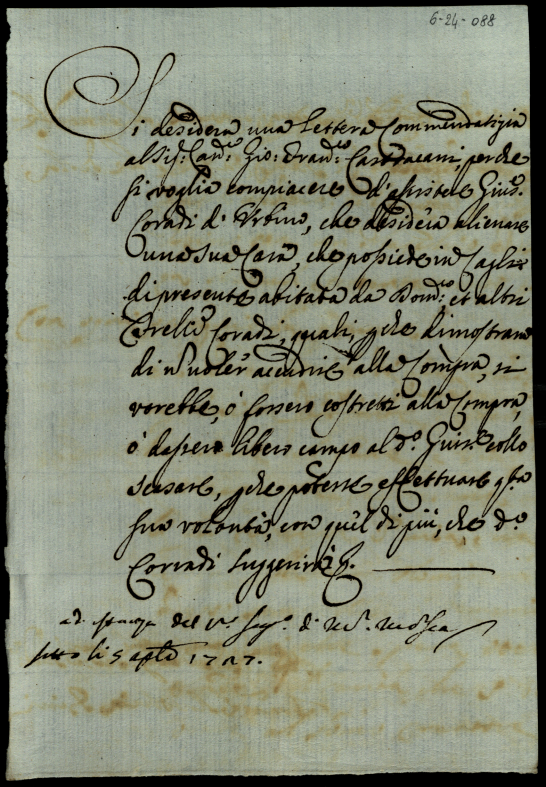 6-24-088
Si desidera una lettera Commendatizia
al Sig.r Cav.re Gio: Fran.co perche
si voglia compiacere d'assistere Gius.e
Coradi d'Urbino, che desidera alienare
una sua Casa, che possiede in Cagli
di presente abitata da Dom.co et altri
Fratelli Coradi, quali, perche dimostrano
di n. voler accudire alla Compra, si
vorebbe, ò fossero costretti alla Compra,
ò dassero libero campo al d.o Gius.e
, perche potesse effettuare q.sta
sua volontà, con quel di più, che d.o
Corradi suggerirà.
ad del Seg.o di Mosca
sotto li 5 1727.